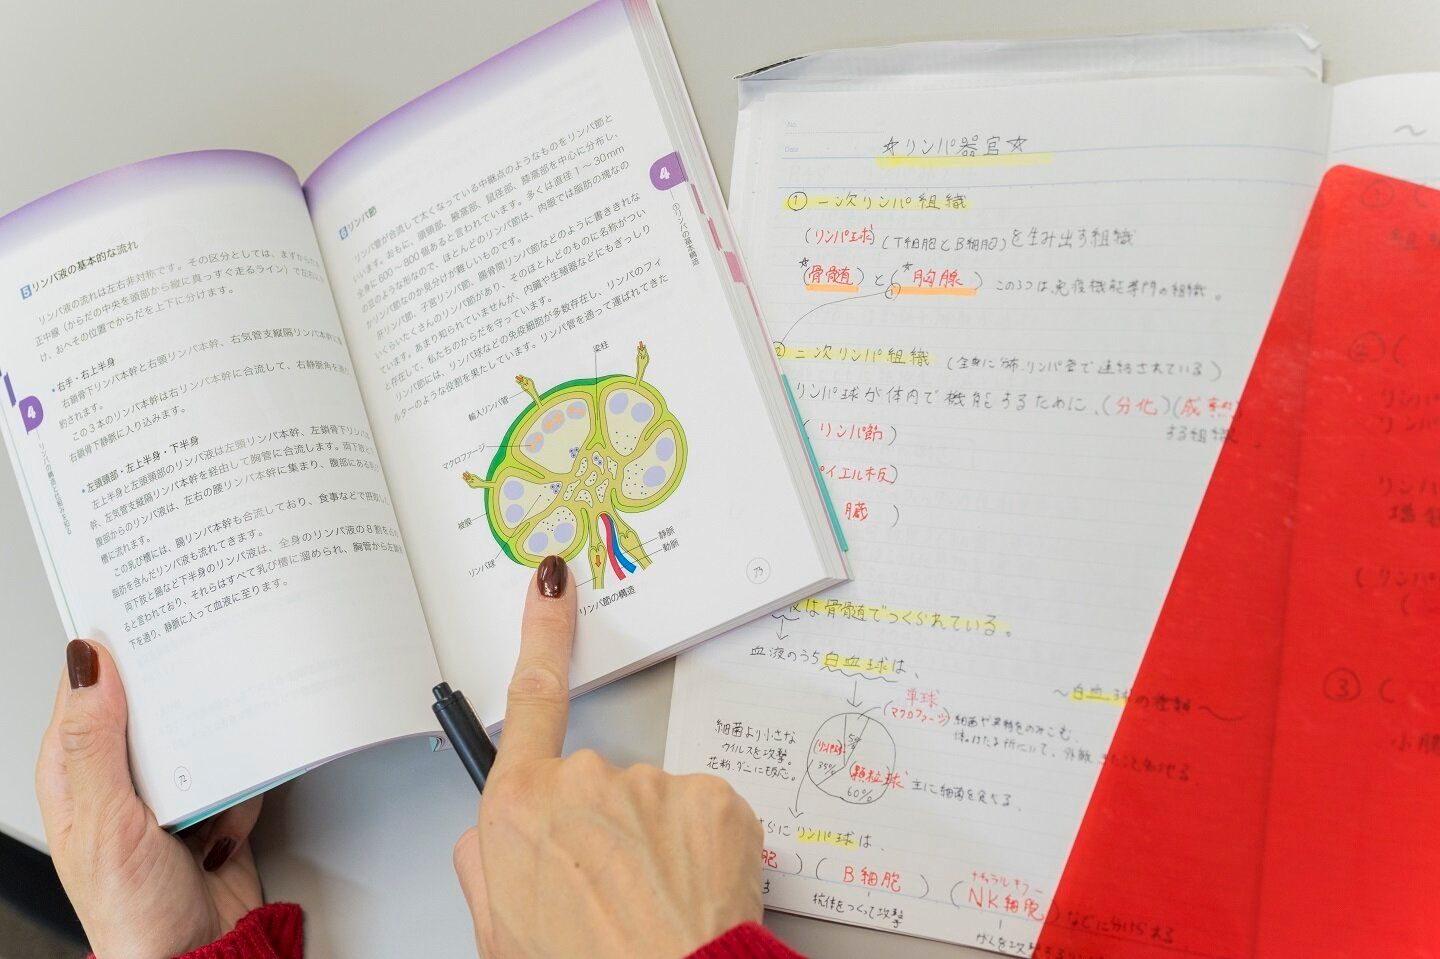 5 リンパ液の基本的な流れ
リンパ液の流れは左右非対称です。その区分としては、まずからだの
正中線（からだの中央を頭部から縦に真っすぐ走るライン）で左右に
け、おへその位置でからだを上下に分けます。
・右手・右上半身
右鎖骨下リンパ本幹と右頸リンパ本幹、右気管支縦隔リンパ本幹に
約されます。
この3本のリンパ本幹は右リンパ本幹に合流して、右静脈角を
右鎖骨下静脈に入り込みます。
・左頭頸部・左上半身・下半身
左上半身と左頭頸部のリンパ液は左頸リンパ本幹、左鎖骨下リンパ
幹、左気管支縦隔リンパ本幹を経由して胸管に合流します。両下肢と
腹部からのリンパ液は、左右の腰リンパ本幹に集まり、腹部にある
槽に流れます。
この乳び槽には、腸リンパ本幹も合流しており、食事などで摂取した
脂肪を含んだリンパ液も流れてきます。
両下肢と腸など下半身のリンパ液は、全身のリンパ液の8割を占め
ると言われており、それらはすべて乳び槽に溜められ、胸管から左鎖骨
下を通り、静脈に入って血液に至ります。
4
リンパの構造と仕組みを知る
72
6 リンパ節
リンパ管が合流して太くなっている中継点のようなものをリンパ節と
いいます。おもに、頭頸部、腋窩部、鼠径部、膝窩部を中心に分布し、
全身に600～800個あると言われています。多くは直径1～30mm
の豆のような形なので、ほとんどのリンパ節は、肉眼では脂肪の塊なの
かリンパ節なのか見分けが難しいものです。
肝リンパ節、子宮リンパ節、腸骨間リンパ節などのように書ききれな
いくらいたくさんのリンパ節があり、そのほとんどのものに名称がつい
ています。あまり知られていませんが、内臓や生殖器などにもぎっしり
と存在して、私たちのからだを守っています。
リンパ節には、リンパ球などの免疫細胞が多数存在し、リンパのフィ
ルターのような役割を果たしています。リンパ管を通って運ばれてきた
4
①リンパの基本構造
梁柱
輸入リンパ管
マクロファージ
被膜
リンパ球
静脈
動脈
リンパ節の構造
73
No.
Date
☆リンパ器官☆
① 一次リンパ組織
(リンパ球)(T細胞とB細胞)を生み出す組織
☆(骨髄)と(☆胸腺) この2つは免疫機能専門の組織。
② 二次リンパ組織 (全身に分布.リンパ管で連結されている)
リンパ球が体内で機能するために、(分化)(成熟)
する組織
(リンパ節)
パイエル板)
臓 )
は骨髄でつくられている。
血液のうち白血球は、
～白血球の種類～
単球
(マクロファージ)
細菌や異物をのみこむ。
細菌より小さな
ウイルスを攻撃。
花粉、ダニにも反応。
5%
(リンパ球)
35%
(顆粒球)
60%
主に細菌を食べる。
さらにリンパ球は、
胞 )(B細胞)(NK細胞)などに分けられる
ナチュラルキラー
抗体をつくって攻撃
③ (